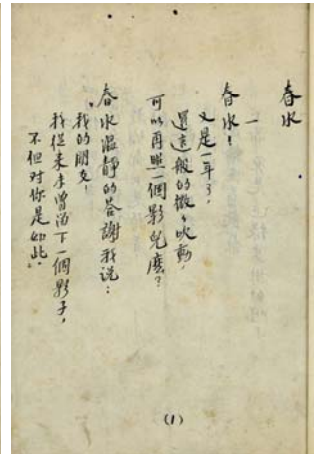 春水
一
春水！
又是一年了，
還這般的微々吹動，
可以再照一個影兒麼？
春水溫靜的答謝我說：
“我的朋友！
我從來未曾留下一個影子，
不但對你是如此。”
(1)